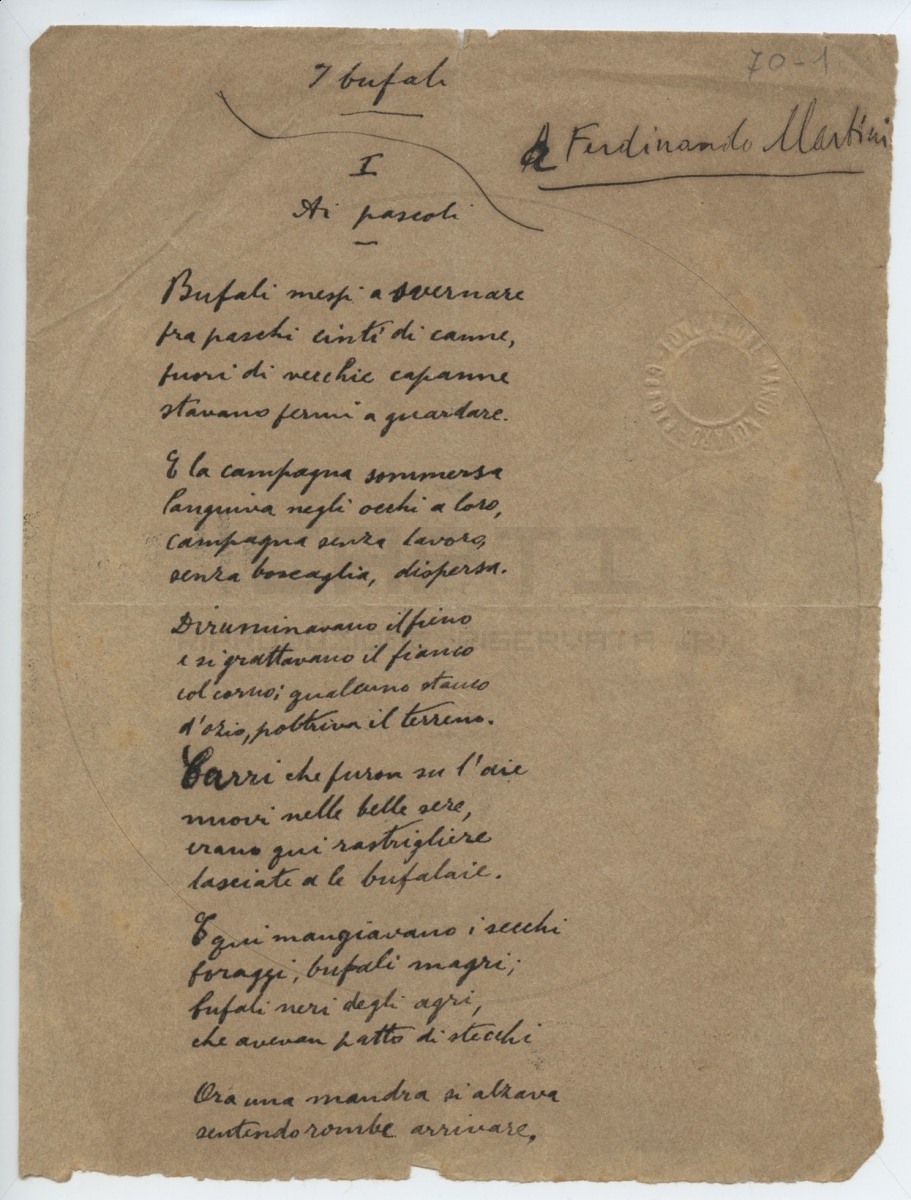 I bufali
70-1
A Ferdinando Martini
I
Ai pascoli
Bufali messi a svernare
fra paschi cinti di canne,
fuori di vecchie capanne
stavano fermi a guardare.
E la campagna sommersa
languiva negli occhi a loro,
campagna senza lavoro,
senza boscaglia, dispersa.
Diruminavano il fieno
e si grattavano il fianco
col corno; qualcuno stanco
d'ozio, poltriva il terreno.
Carri che furon su l'aie
nuovi nelle belle sere,
erano qui rastrigliere
lasciate a le bufalaie.
E qui mangiavano i secchi
foraggi, bufali magri;
bufali neri degli agri,
che avevan patto di stecchi
Ora una mandra si alzava
sentendo rombe arrivare,